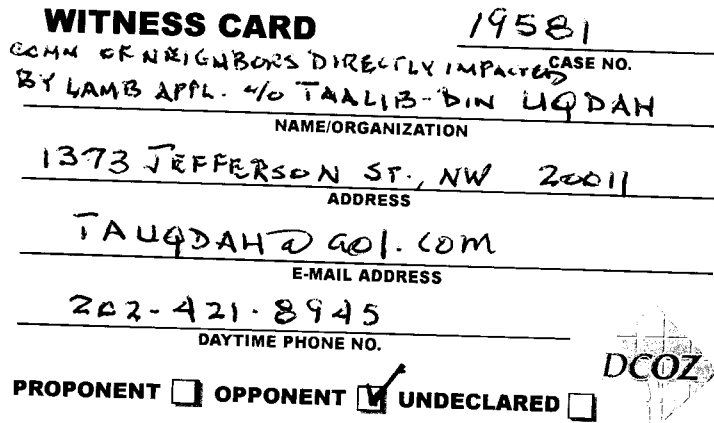 WITNESS CARD 19581
CASE NO.
COMM OF NEIGHBORS DIRECTLY IMPACTED
BY LAMB APPL. c/o TAALIB-DIN UQDAH
NAME/ORGANIZATION
1373 JEFFERSON ST., NW 20011
ADDRESS
TAUQDAH@aol.com
E-MAIL ADDRESS
202-421-8945
DAYTIME PHONE NO.
DCOZ
PROPONENT ☐ OPPONENT ☑ UNDECLARED ☐